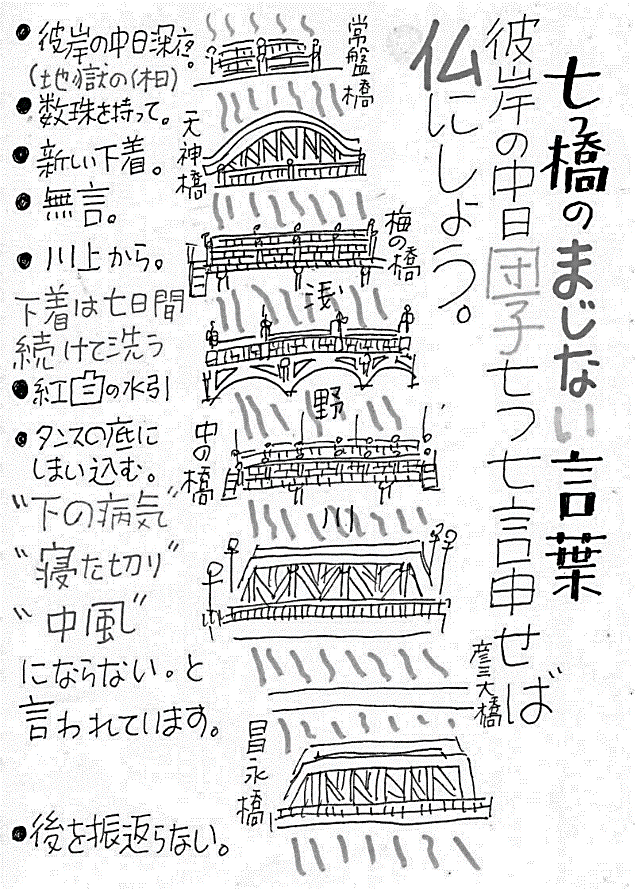 七つ橋のまじない言葉
彼岸の中日団子七つ七言申せば
仏にしよう。
常盤橋
天神橋
梅の橋
浅野川
中の橋
彦三大橋
昌永橋
●彼岸の中日深夜。
(地獄の(相)
●数珠を持って。
●新しい下着。
●無言。
●川上から。
下着は七日間
続けて洗う
●紅白の水引
●タンスの底に
しまい込む。
"下の病気"
"寝た切り"
"中風"
にならない。と
言われています。
●後を振返らない。